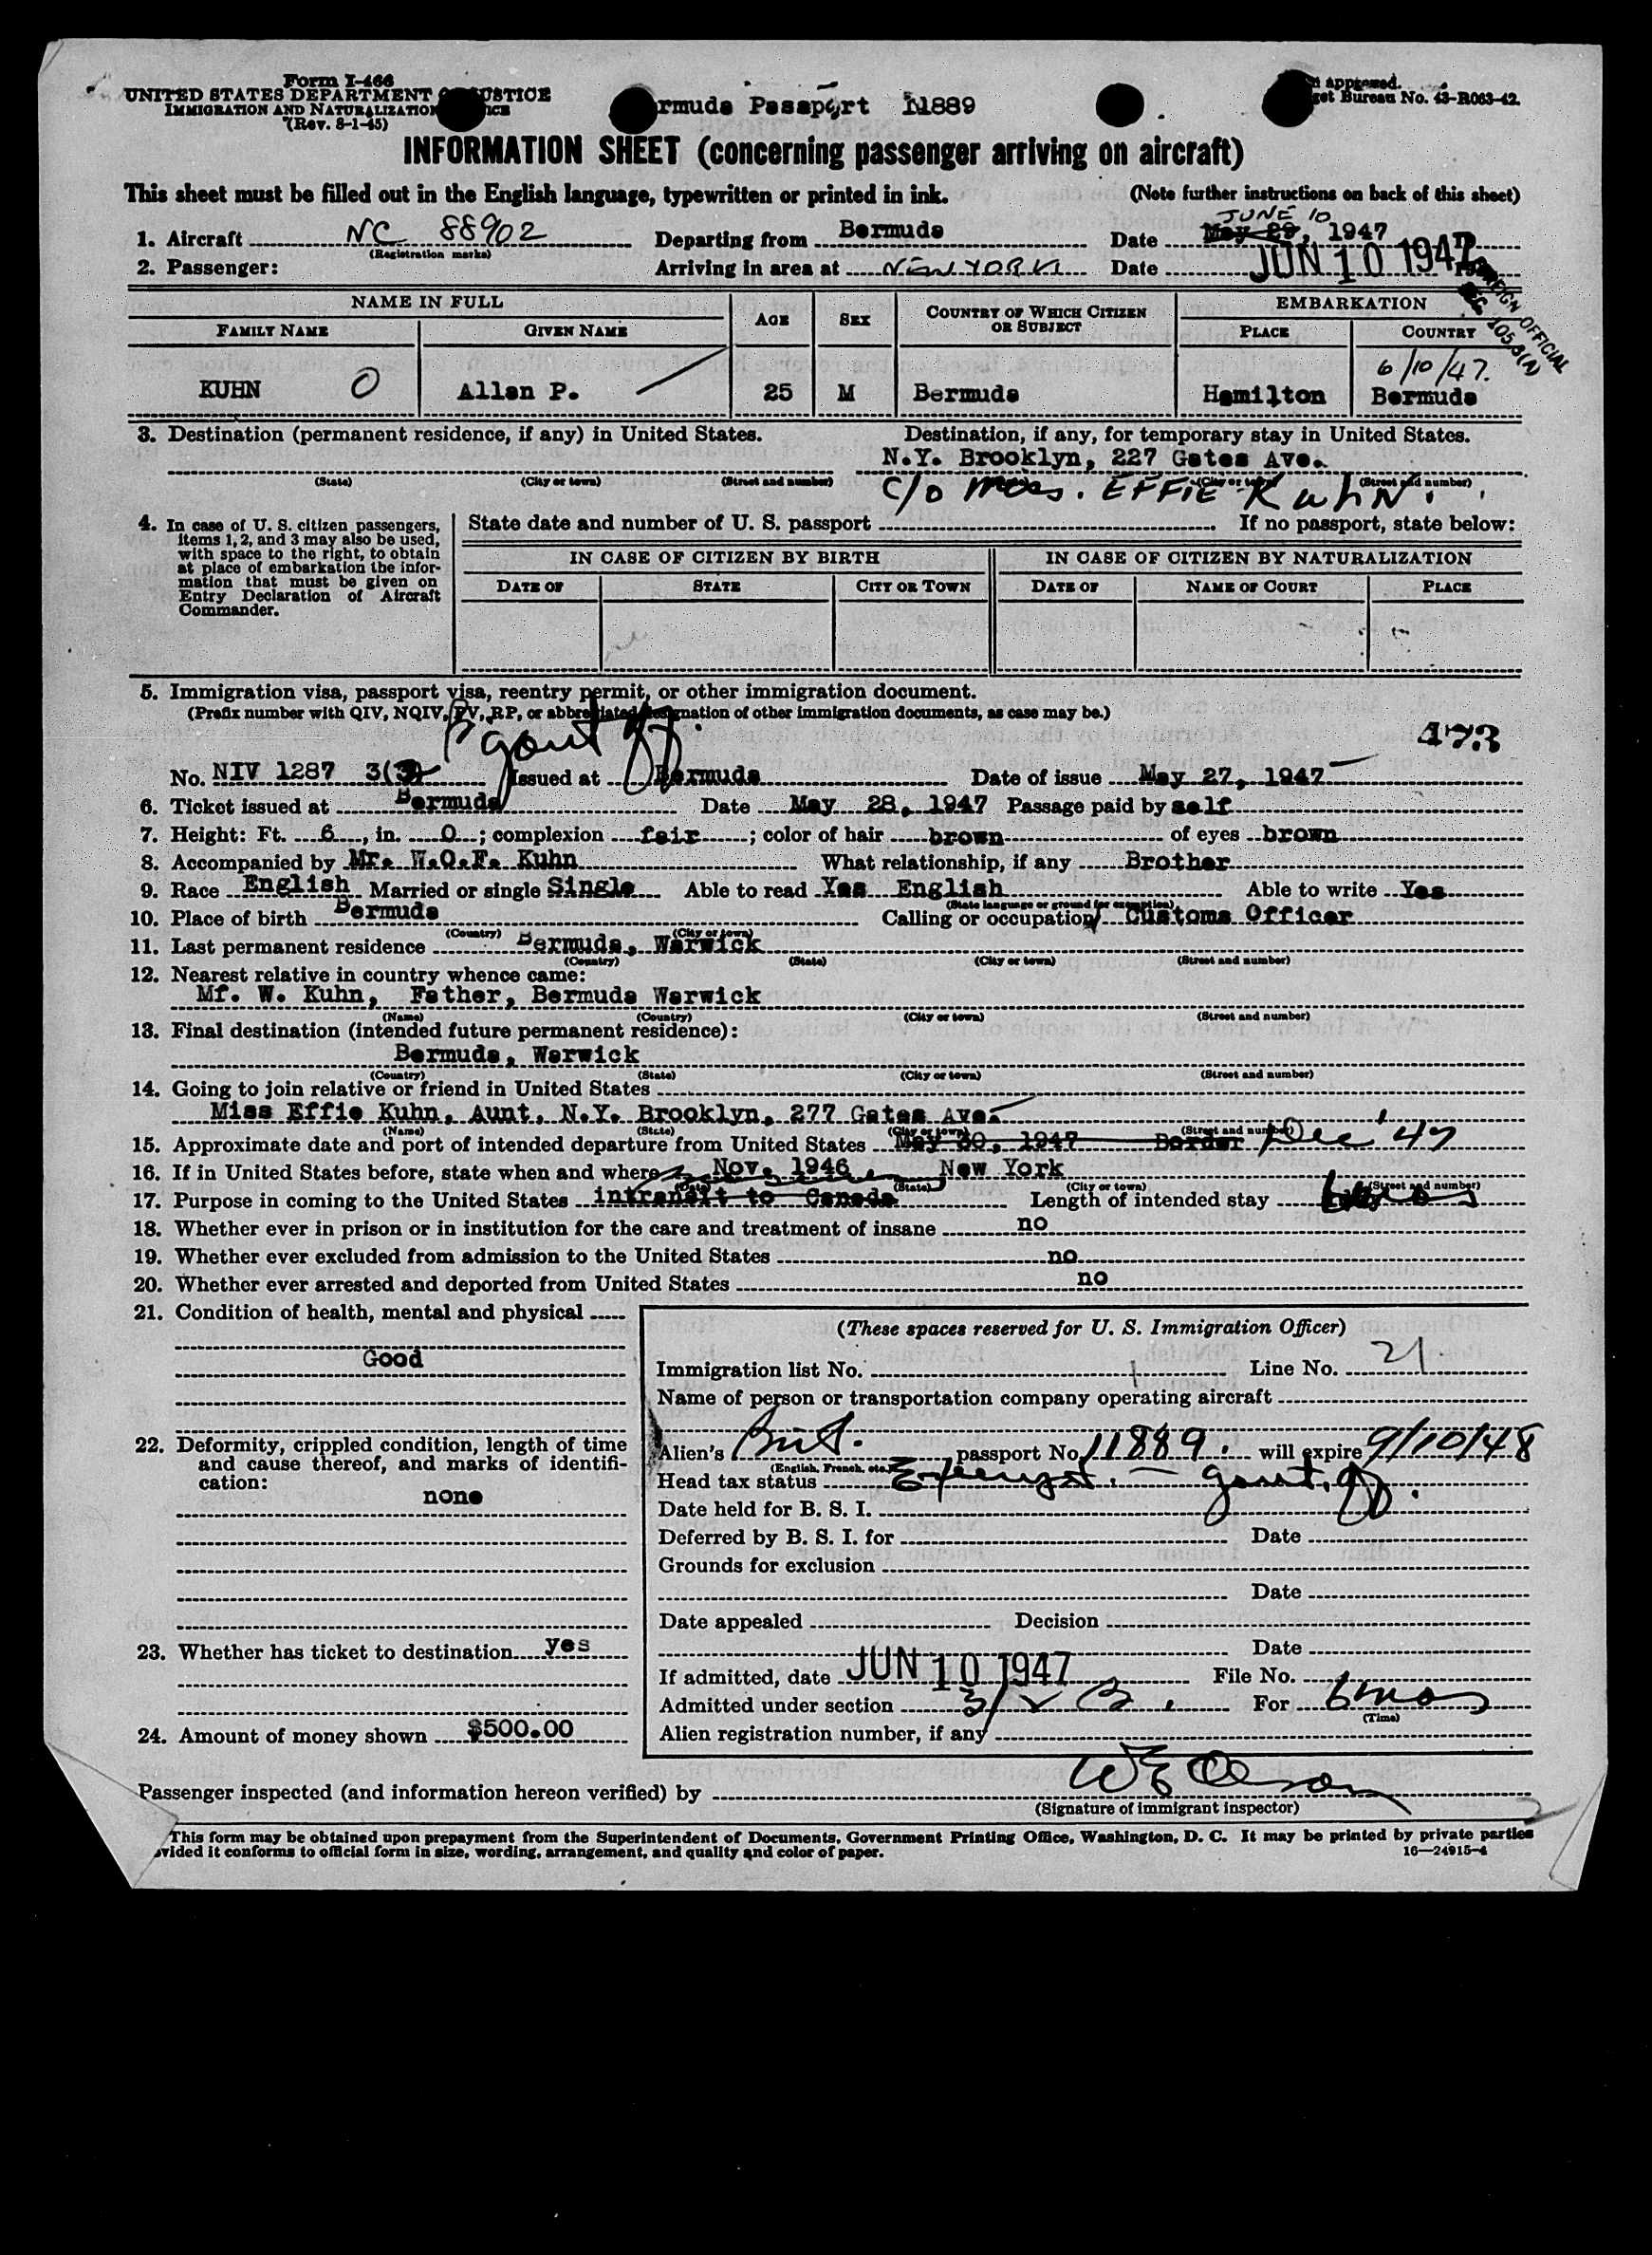 Form I-466
UNITED STATES DEPARTMENT OF JUSTICE
IMMIGRATION AND NATURALIZATION SERVICE
(Rev. 8-1-45)
rmuda Passport 11889
approved.
get Bureau No. 43-R063-42.
INFORMATION SHEET (concerning passenger arriving on aircraft)
This sheet must be filled out in the English language, typewritten or printed in ink. (Note further instructions on back of this sheet)
JUNE 10
1. Aircraft NC 88902 Departing from Bermuda Date May 29, 1947
(Registration marks)
2. Passenger: Arriving in area at NEW YORK Date JUN 10 1947
FOREIGN OFFICIAL
SEC 105.3(A)
6/10/47.
NAME IN FULL AGE SEX COUNTRY OF WHICH CITIZEN OR SUBJECT EMBARKATION
FAMILY NAME GIVEN NAME PLACE COUNTRY
KUHN O Allan P. 25 M Bermuda Hamilton Bermuda
3. Destination (permanent residence, if any) in United States. Destination, if any, for temporary stay in United States.
N.Y. Brooklyn, 227 Gates Ave.
(State) (City or town) (Street and number) (City or town) (Street and number)
C/o Miss. EFFIE KuhN.
4. In case of U. S. citizen passengers, items 1, 2, and 3 may also be used, with space to the right, to obtain at place of embarkation the information that must be given on Entry Declaration of Aircraft Commander.
State date and number of U. S. passport If no passport, state below:
IN CASE OF CITIZEN BY BIRTH IN CASE OF CITIZEN BY NATURALIZATION
DATE OF STATE CITY OR TOWN DATE OF NAME OF COURT PLACE
5. Immigration visa, passport visa, reentry permit, or other immigration document.
(Prefix number with QIV, NQIV, PV, RP, or abbreviated designation of other immigration documents, as case may be.)
473
No. NIV 1287 3(3) Issued at Bermuda Date of issue May 27, 1947
6. Ticket issued at Bermuda Date May 28, 1947 Passage paid by self
7. Height: Ft. 6, in. 0; complexion fair; color of hair brown of eyes brown
8. Accompanied by Mr. W.O.F. Kuhn What relationship, if any Brother
9. Race English Married or single Single Able to read Yes English Able to write Yes
(State language or ground for exemption)
10. Place of birth Bermuda Calling or occupation Customs Officer
(Country) (City or town)
11. Last permanent residence Bermuda, Warwick
(Country) (State) (City or town) (Street and number)
12. Nearest relative in country whence came:
Mf. W. Kuhn, Father, Bermuda Warwick
(Name) (Country) (City or town) (Street and number)
13. Final destination (intended future permanent residence):
Bermuda, Warwick
(Country) (State) (City or town) (Street and number)
14. Going to join relative or friend in United States
Miss Effie Kuhn, Aunt, N.Y. Brooklyn, 277 Gates Ave.
(Name) (State) (City or town) (Street and number)
15. Approximate date and port of intended departure from United States May 30, 1947 Border Dec '47
16. If in United States before, state when and where Nov. 1946, New York
(Date) (State) (City or town) (Street and number)
17. Purpose in coming to the United States intransit to Canada Length of intended stay
18. Whether ever in prison or in institution for the care and treatment of insane no
19. Whether ever excluded from admission to the United States no
20. Whether ever arrested and deported from United States no
21. Condition of health, mental and physical
Good
22. Deformity, crippled condition, length of time and cause thereof, and marks of identification:
none
23. Whether has ticket to destination yes
24. Amount of money shown $500.00
(These spaces reserved for U. S. Immigration Officer)
Immigration list No. 1 Line No. 21.
Name of person or transportation company operating aircraft
Alien's Brit. passport No. 11889. will expire 9/10/48
(English, French, etc.)
Head tax status Exempt. — govt.
Date held for B. S. I.
Deferred by B. S. I. for Date
Grounds for exclusion
Date
Date appealed Decision
Date
If admitted, date JUN 10 1947 File No.
Admitted under section 3/2 For 6 mos
(Time)
Alien registration number, if any
Passenger inspected (and information hereon verified) by W E Olson
(Signature of immigrant inspector)
This form may be obtained upon prepayment from the Superintendent of Documents, Government Printing Office, Washington, D. C. It may be printed by private parties
vided it conforms to official form in size, wording, arrangement, and quality and color of paper.
16—24915-4